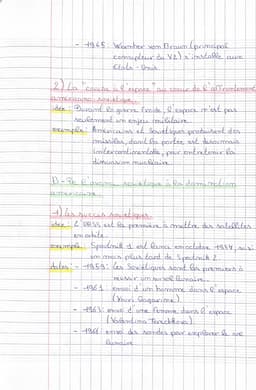 - 1945 : Wernher von Braun (principal
concepteur du V2) s'installe aux
Etats-Unis
2) La "course à l'espace" au coeur de l'affrontement
américano-soviétique
idée : Durant la guerre froide, l'espace n'est pas
seulement un enjeu militaire
exemple : Américains et Soviétiques produisent des
missiles, dont la portée est désormais
intercontinentale, pour entretenir la
dissuasion nucléaire
B - De l'avance soviétique à la domination
américaine
1) Les succès soviétiques
idée : L'URSS est la première à mettre des satellites
en orbite.
exemple : Spoutnik 1 est lancé en octobre 1957, suivi
un mois plus tard de Spoutnik 2
dates : - 1959 : les Soviétiques sont les premiers à
réussir un survol lunaire
- 1961 : envoi d'un homme dans l'espace
(Youri Gagarine)
- 1963 : envoi d'une femme dans l'espace
(Valentina Terechkova)
- envoi des sondes pour explorer le sol
lunaire